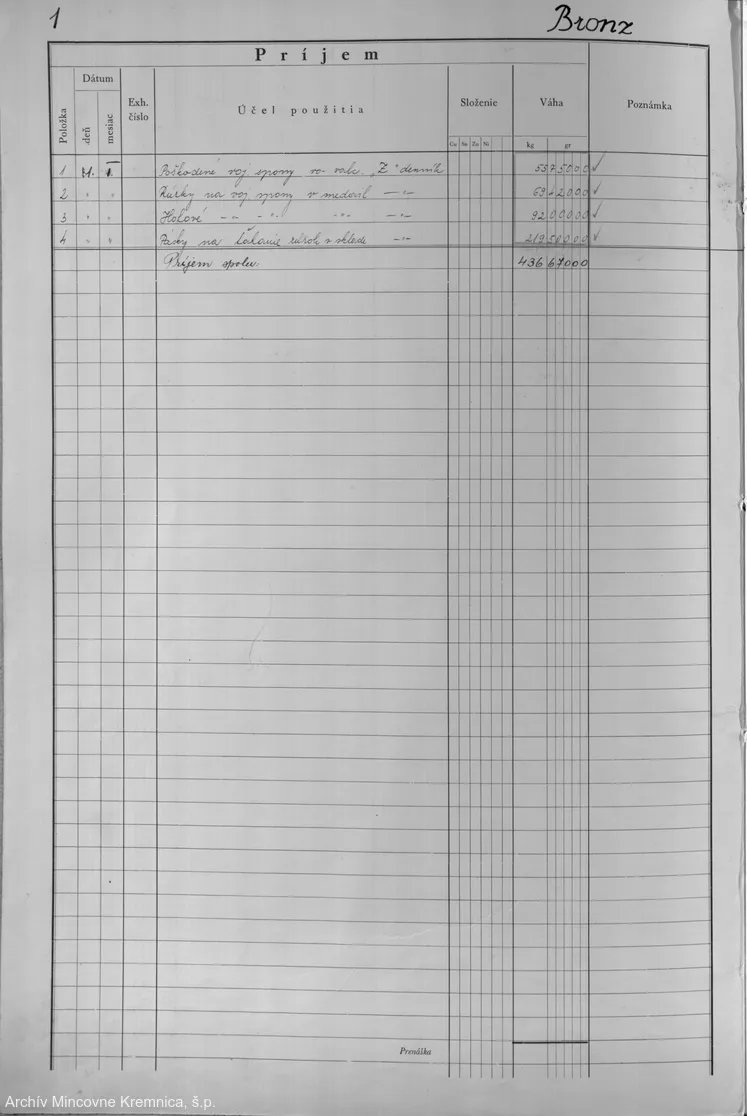 1
Bronz
Príjem
Položka
Dátum
deň
mesiac
Exh. číslo
Účel použitia
Složenie
Cu Sn Zn Ni
Váha
kg gr
Poznámka
1 1. Poškodené voj. spony vo valc. „Z“ denník 55750000 ✓
2 " " na voj. spony v medail. —"— 6942000 ✓
3 " " Hotové —"— —"— —"— —"— 9200000 ✓
4 " " Pásky na v sklade —"— 21950000 ✓
Príjem spolu: 43667000
Prenáška
Archív Mincovne Kremnica, š.p.